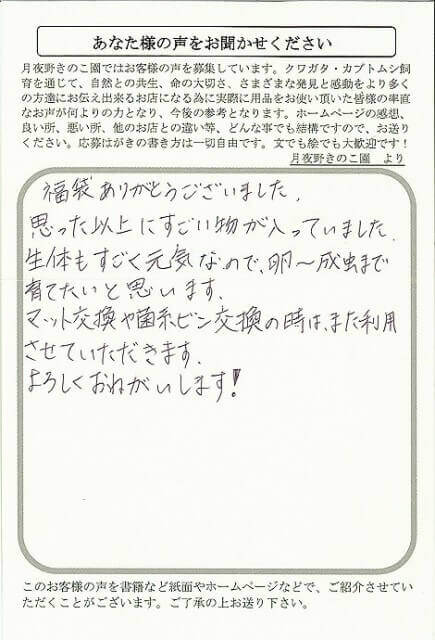 あなた様の声をお聞かせください
月夜野きのこ園ではお客様の声を募集しています。クワガタ・カブトムシ飼
育を通じて、自然との共生、命の大切さ、さまざまな発見と感動をより多く
の方達にお伝え出来るお店になる為に実際に用品をお使い頂いた皆様の率直
なお声が何よりの力となり、今後の参考となります。ホームページの感想、
良い所、悪い所、他のお店との違い等、どんな事でも結構ですので、お送り
ください。応募はがきの書き方は一切自由です。文でも絵でも大歓迎です！
月夜野きのこ園　より
福袋ありがとうございました。
思った以上にすごい物が入っていました。
生体もすごく元気なので、卵～成虫まで
育てたいと思います。
マット交換や菌糸ビン交換の時は、また利用
させていただきます。
よろしくおねがいします!
このお客様の声を書籍など紙面やホームページなどで、ご紹介させてい
ただくことがございます。ご了承の上お送り下さい。